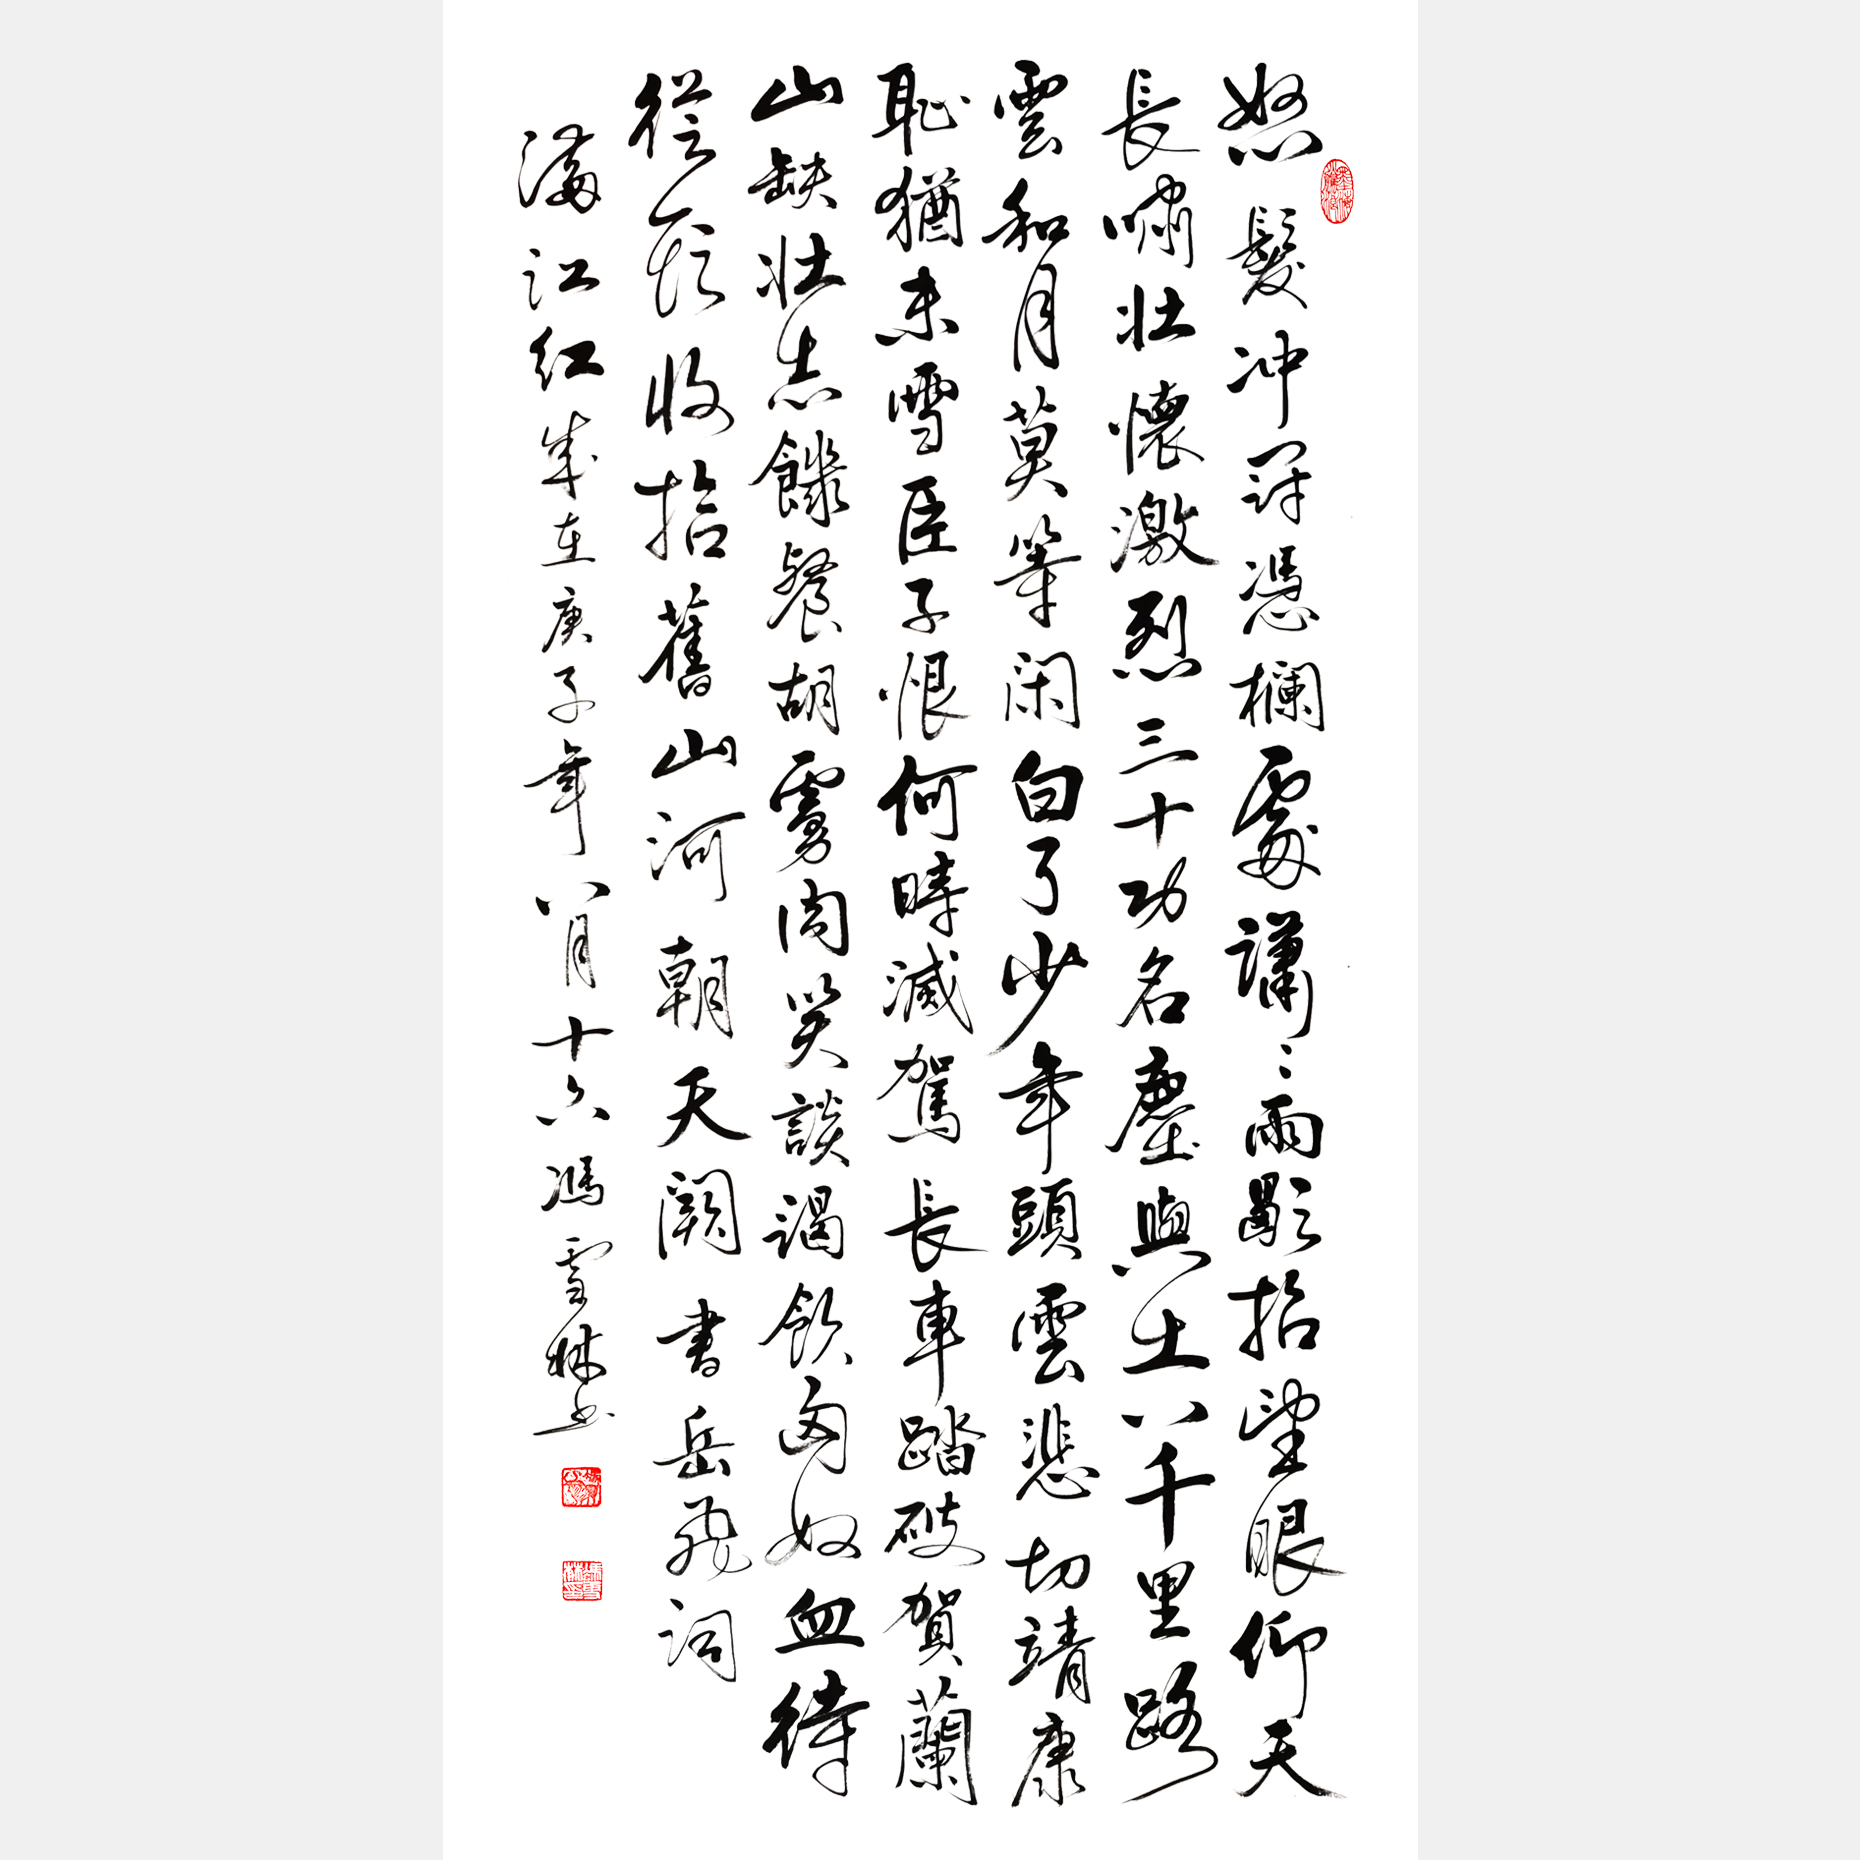 怒髮冲冠憑欄處潇〻雨歇抬望眼仰天
長嘯壯懷激烈三十功名塵與土八千里路
雲和月莫等闲白了少年頭雲悲切靖康
恥猶未雪臣子恨何時滅駕長車踏破賀蘭
山缺壯志饑餐胡虜肉笑談渴飲匈奴血待
從頭收拾舊山河朝天闕書岳飛词
满江红歲在庚子年八月十六馮雲林书